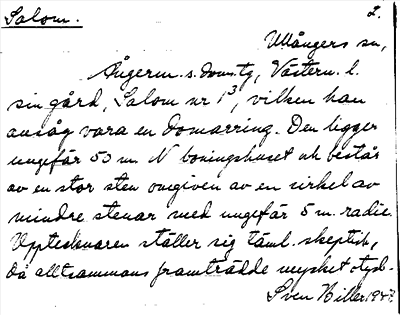 Salom.
2.
Ullångers sn,
Ångerm. s. doms.tg, Västern. l.
sin gård, Salom nr 1³, vilken han
ansåg vara en domarring. Den ligger
ungefär 50 m N boningshuset och består
av en stor sten omgiven av en cirkel av
mindre stenar med ungefär 5 m. radie.
Upptecknaren ställer sig täml. skeptisk,
då alltsammans framträdde mycket otyd-
Sven Hiller 1947